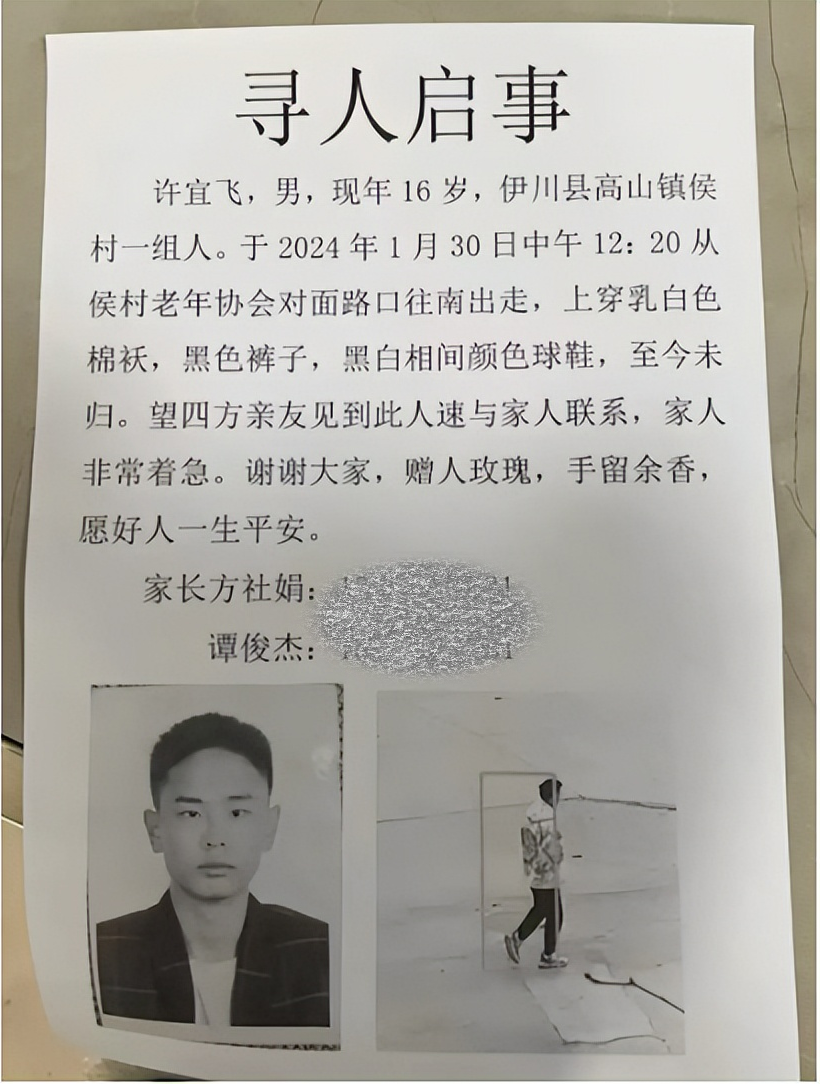 寻人启事
许宜飞，男，现年 16 岁，伊川县高山镇侯
村一组人。于 2024 年 1 月 30 日中午 12：20 从
侯村老年协会对面路口往南出走，上穿乳白色
棉袄，黑色裤子，黑白相间颜色球鞋，至今未
归。望四方亲友见到此人速与家人联系，家人
非常着急。谢谢大家，赠人玫瑰，手留余香，
愿好人一生平安。
家长方社娟：
谭俊杰：